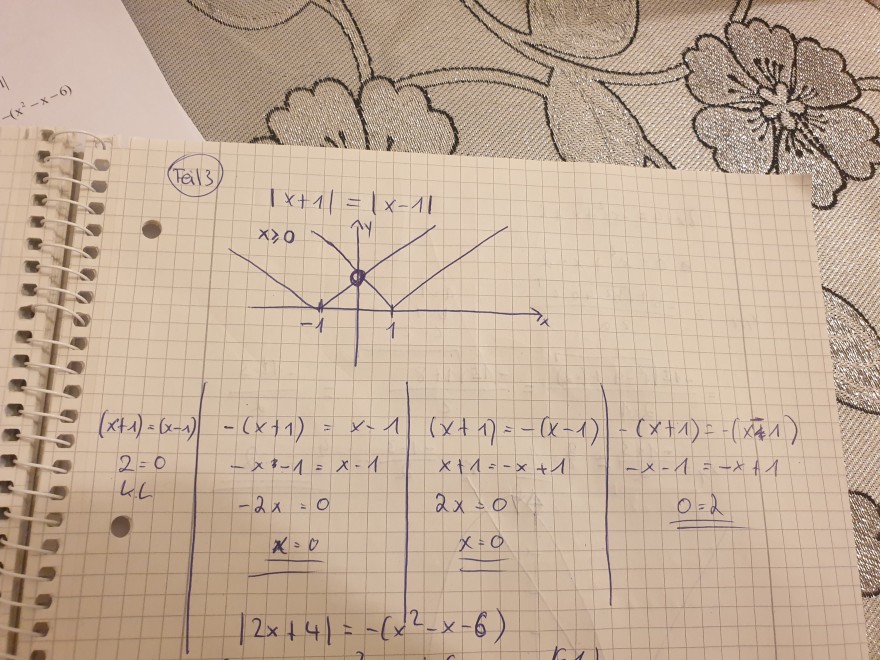 -(x²-x-6)
Teil 3
|x+1| = |x-1|
x≥0
y
-1 1 x
(x+1)=(x-1)
2=0
k.L
-(x+1) = x-1
-x-1 = x-1
-2x = 0
x=0
(x+1)=-(x-1)
x+1=-x+1
2x=0
x=0
-(x+1)=-(x-1)
-x-1=-x+1
0=2
|2x+4|=-(x²-x-6)